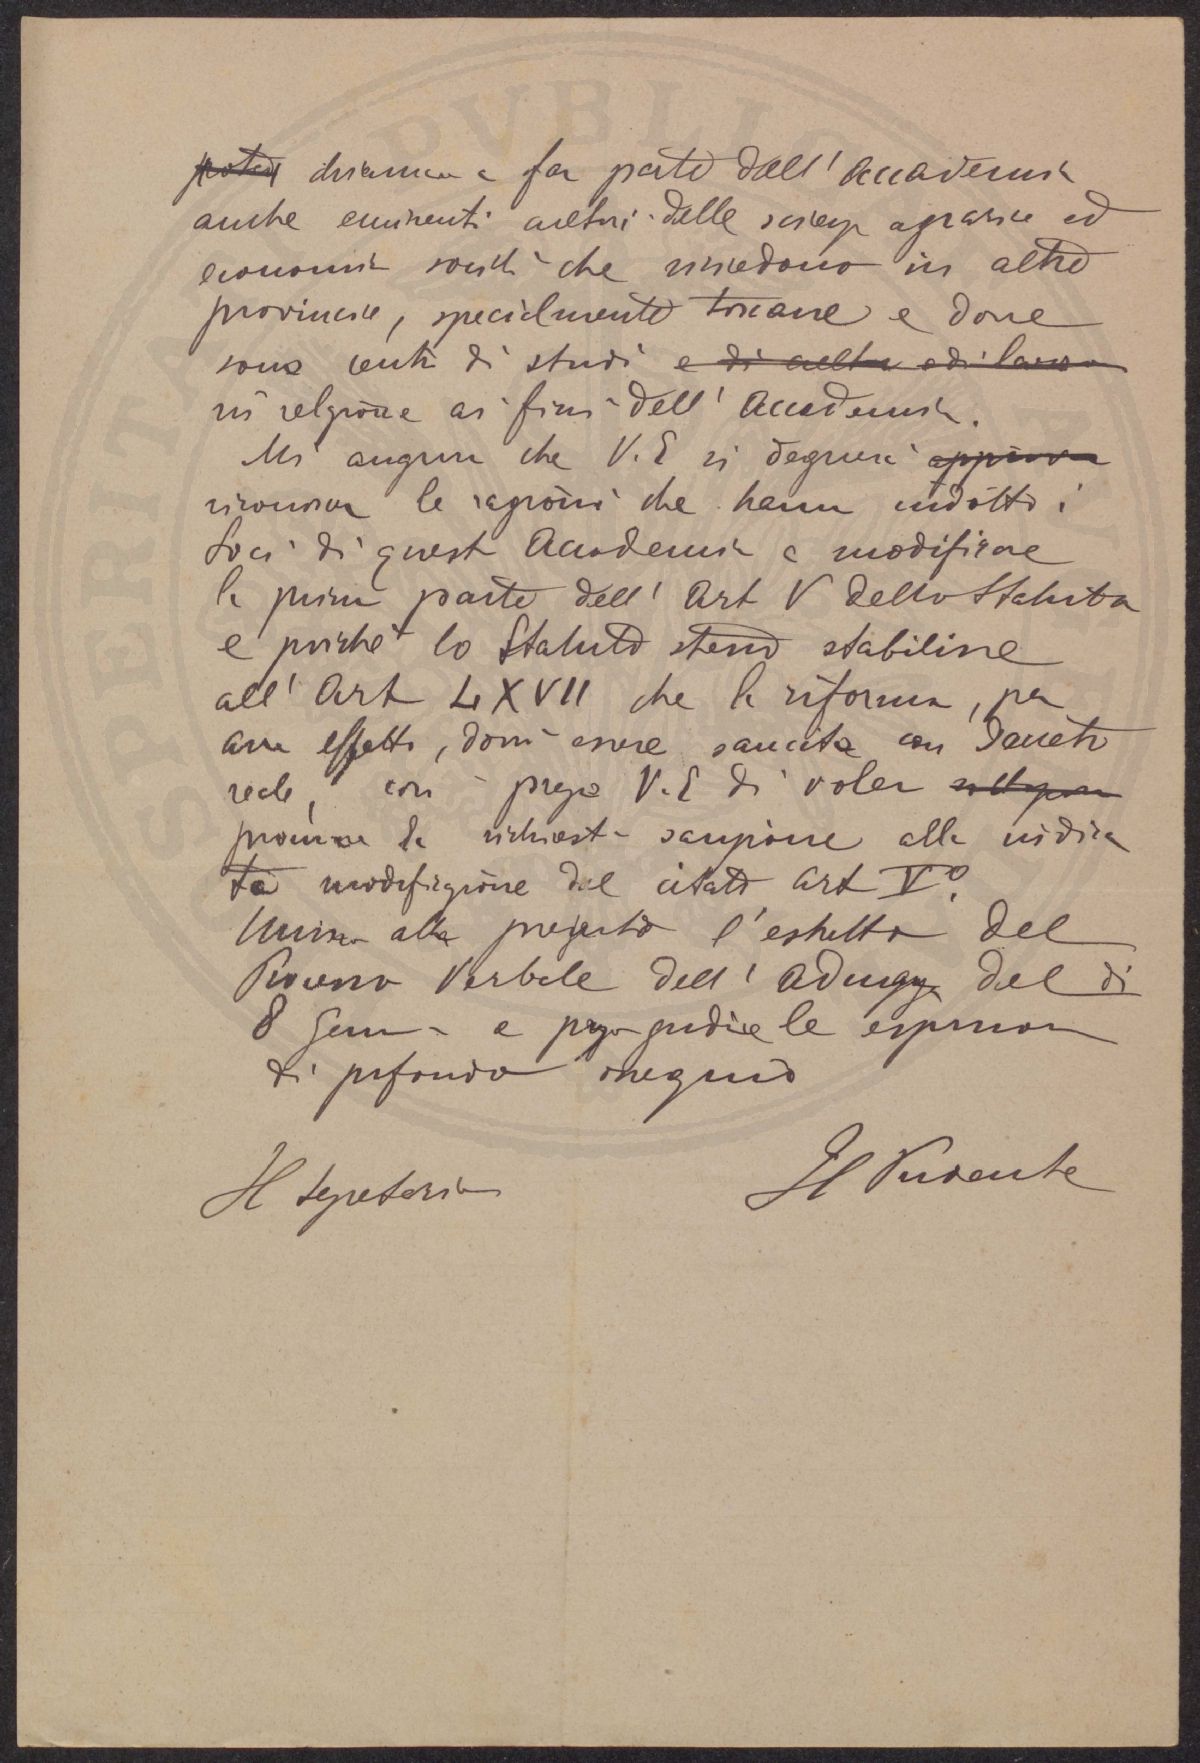 poter chiamare a far parte dell' Accademia
anche eminenti cultori delle scienze agrarie ed
economia sociali che risiedono in altre
provincie, specialmente toscane e dove
sono centri di studi e di cultu
in relazione ai fini dell' Accademia.
Mi auguro che V.E si degnerà approvar
riconoscer le ragioni che hanno indotto i
Soci di questa Accademia a modificare
la prima parte dell' Art V dello Statuto
e poichè lo Statuto stesso stabilisce
all' Art LXVII che la riforma, per
aver effetto, dovrà essere sancita con Decreto
reale, così prego V.E di voler
promuover la richiesta sanzione alla indica
ta modificazione del citato Art V°.
Unisco alla presente l'estratto del
Processo Verbale dell' Adunanza del di
8 Genn e prego gradire le espressioni
di profondo ossequio
Il Segretario
Il Presidente